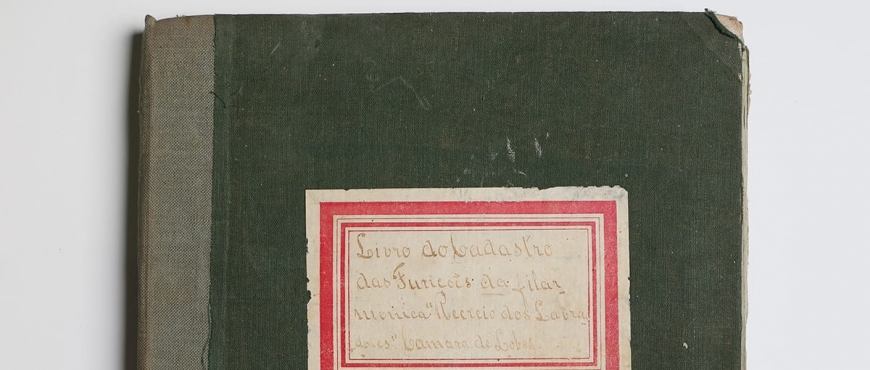 Livro do Cadastro
das Funções da filar
monica "Recreio dos Lavra
dores" Camara de Lobos